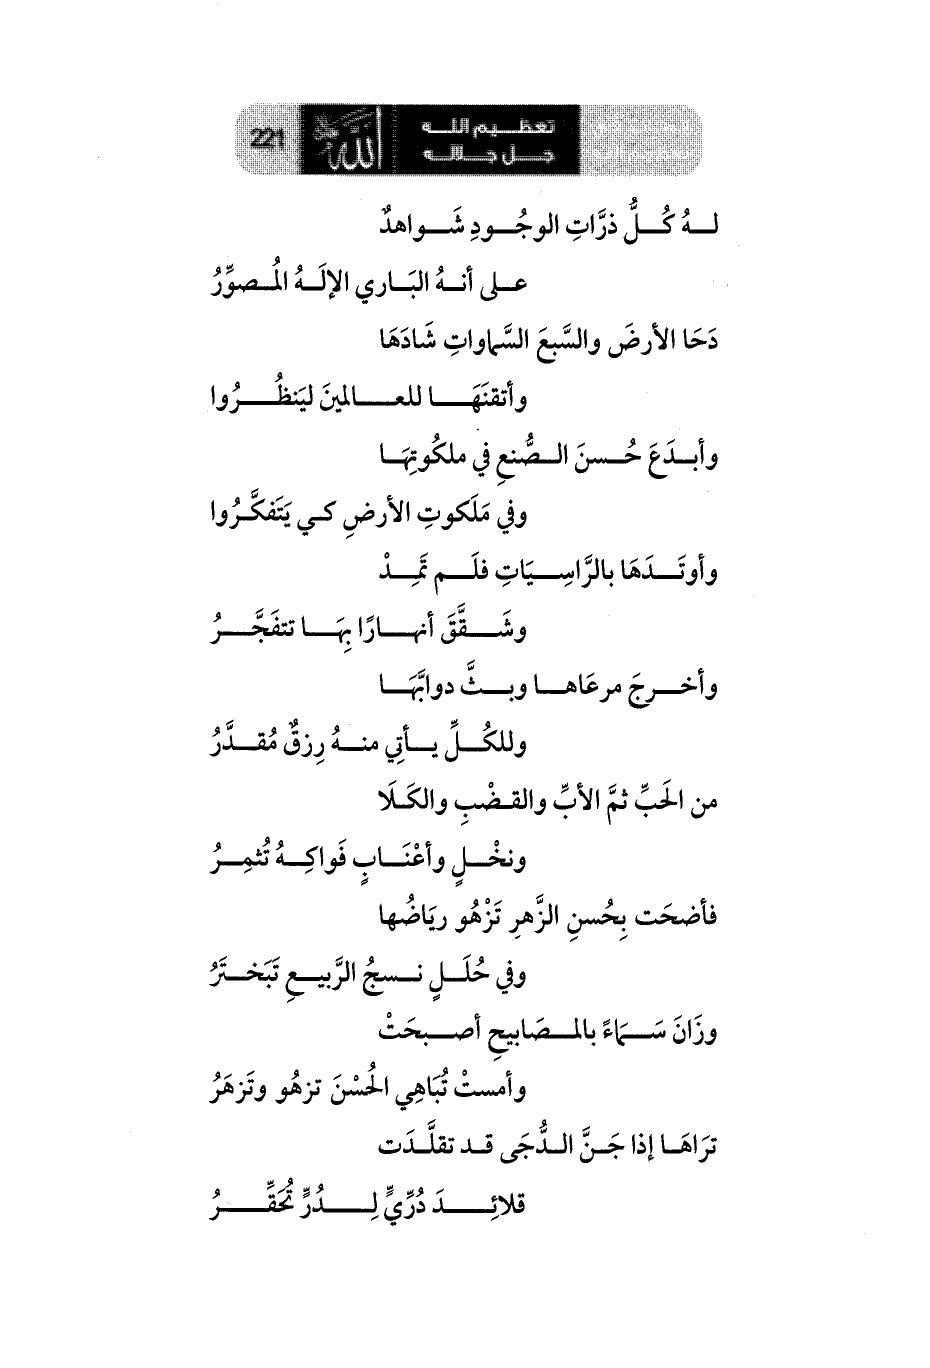 تعظيم الله
جل جلاله
الله
221
لـهُ كُـلُّ ذرَّاتِ الوجُـودِ شَـواهدٌ
عـلى أنـهُ البَـاري الإلَـهُ المُـصوِّرُ
دَحَا الأرضَ والسَّبعَ السَّماواتِ شَادَهَا
وأتقنَهَـا للعـالمينَ ليَنظُـرُوا
وأبـدَعَ حُـسنَ الـصُّنعِ في ملكُوتِهَـا
وفي مَلَكوتِ الأرضِ كـي يَتَفكَّـرُوا
وأوتَـدَهَا بالرَّاسِـيَاتِ فلَـم تَمِـدْ
وشَـقَّقَ أنهـارًا بِهَـا تتفَجَّـرُ
وأخـرجَ مرعَاهـا وبـثَّ دوابَّهَـا
وللكُـلِّ يـأتِي منـهُ رِزقٌ مُقـدَّرُ
من الحَبِّ ثمَّ الأبِّ والقـضْبِ والكَـلَا
ونخْـلٍ وأعْنَـابٍ فَواكِـهُ تُثمِـرُ
فأضحَت بِحُسنِ الزَّهرِ تَزْهُو ريَاضُها
وفي حُلَـلٍ نـسجُ الرَّبيـعِ تَبَخـتَرُ
وزَانَ سَـمَاءً بالمـصَابيحِ أصـبحَتْ
وأمستْ تُبَاهِي الحُسْنَ تزهُو وتَزهَرُ
ترَاهَـا إذا جَـنَّ الـدُّجَى قـد تقلَّـدَت
قلائِـدَ دُرِّيٍّ لِـدُرٍّ تُحَقِّـرُ